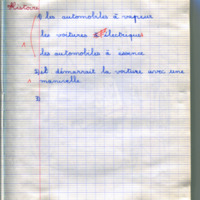 Histoire
1) les automobiles à vapeur
les voitures électriques
les automobiles à essence
2) il démarrait la voiture avec une
manivelle
3)